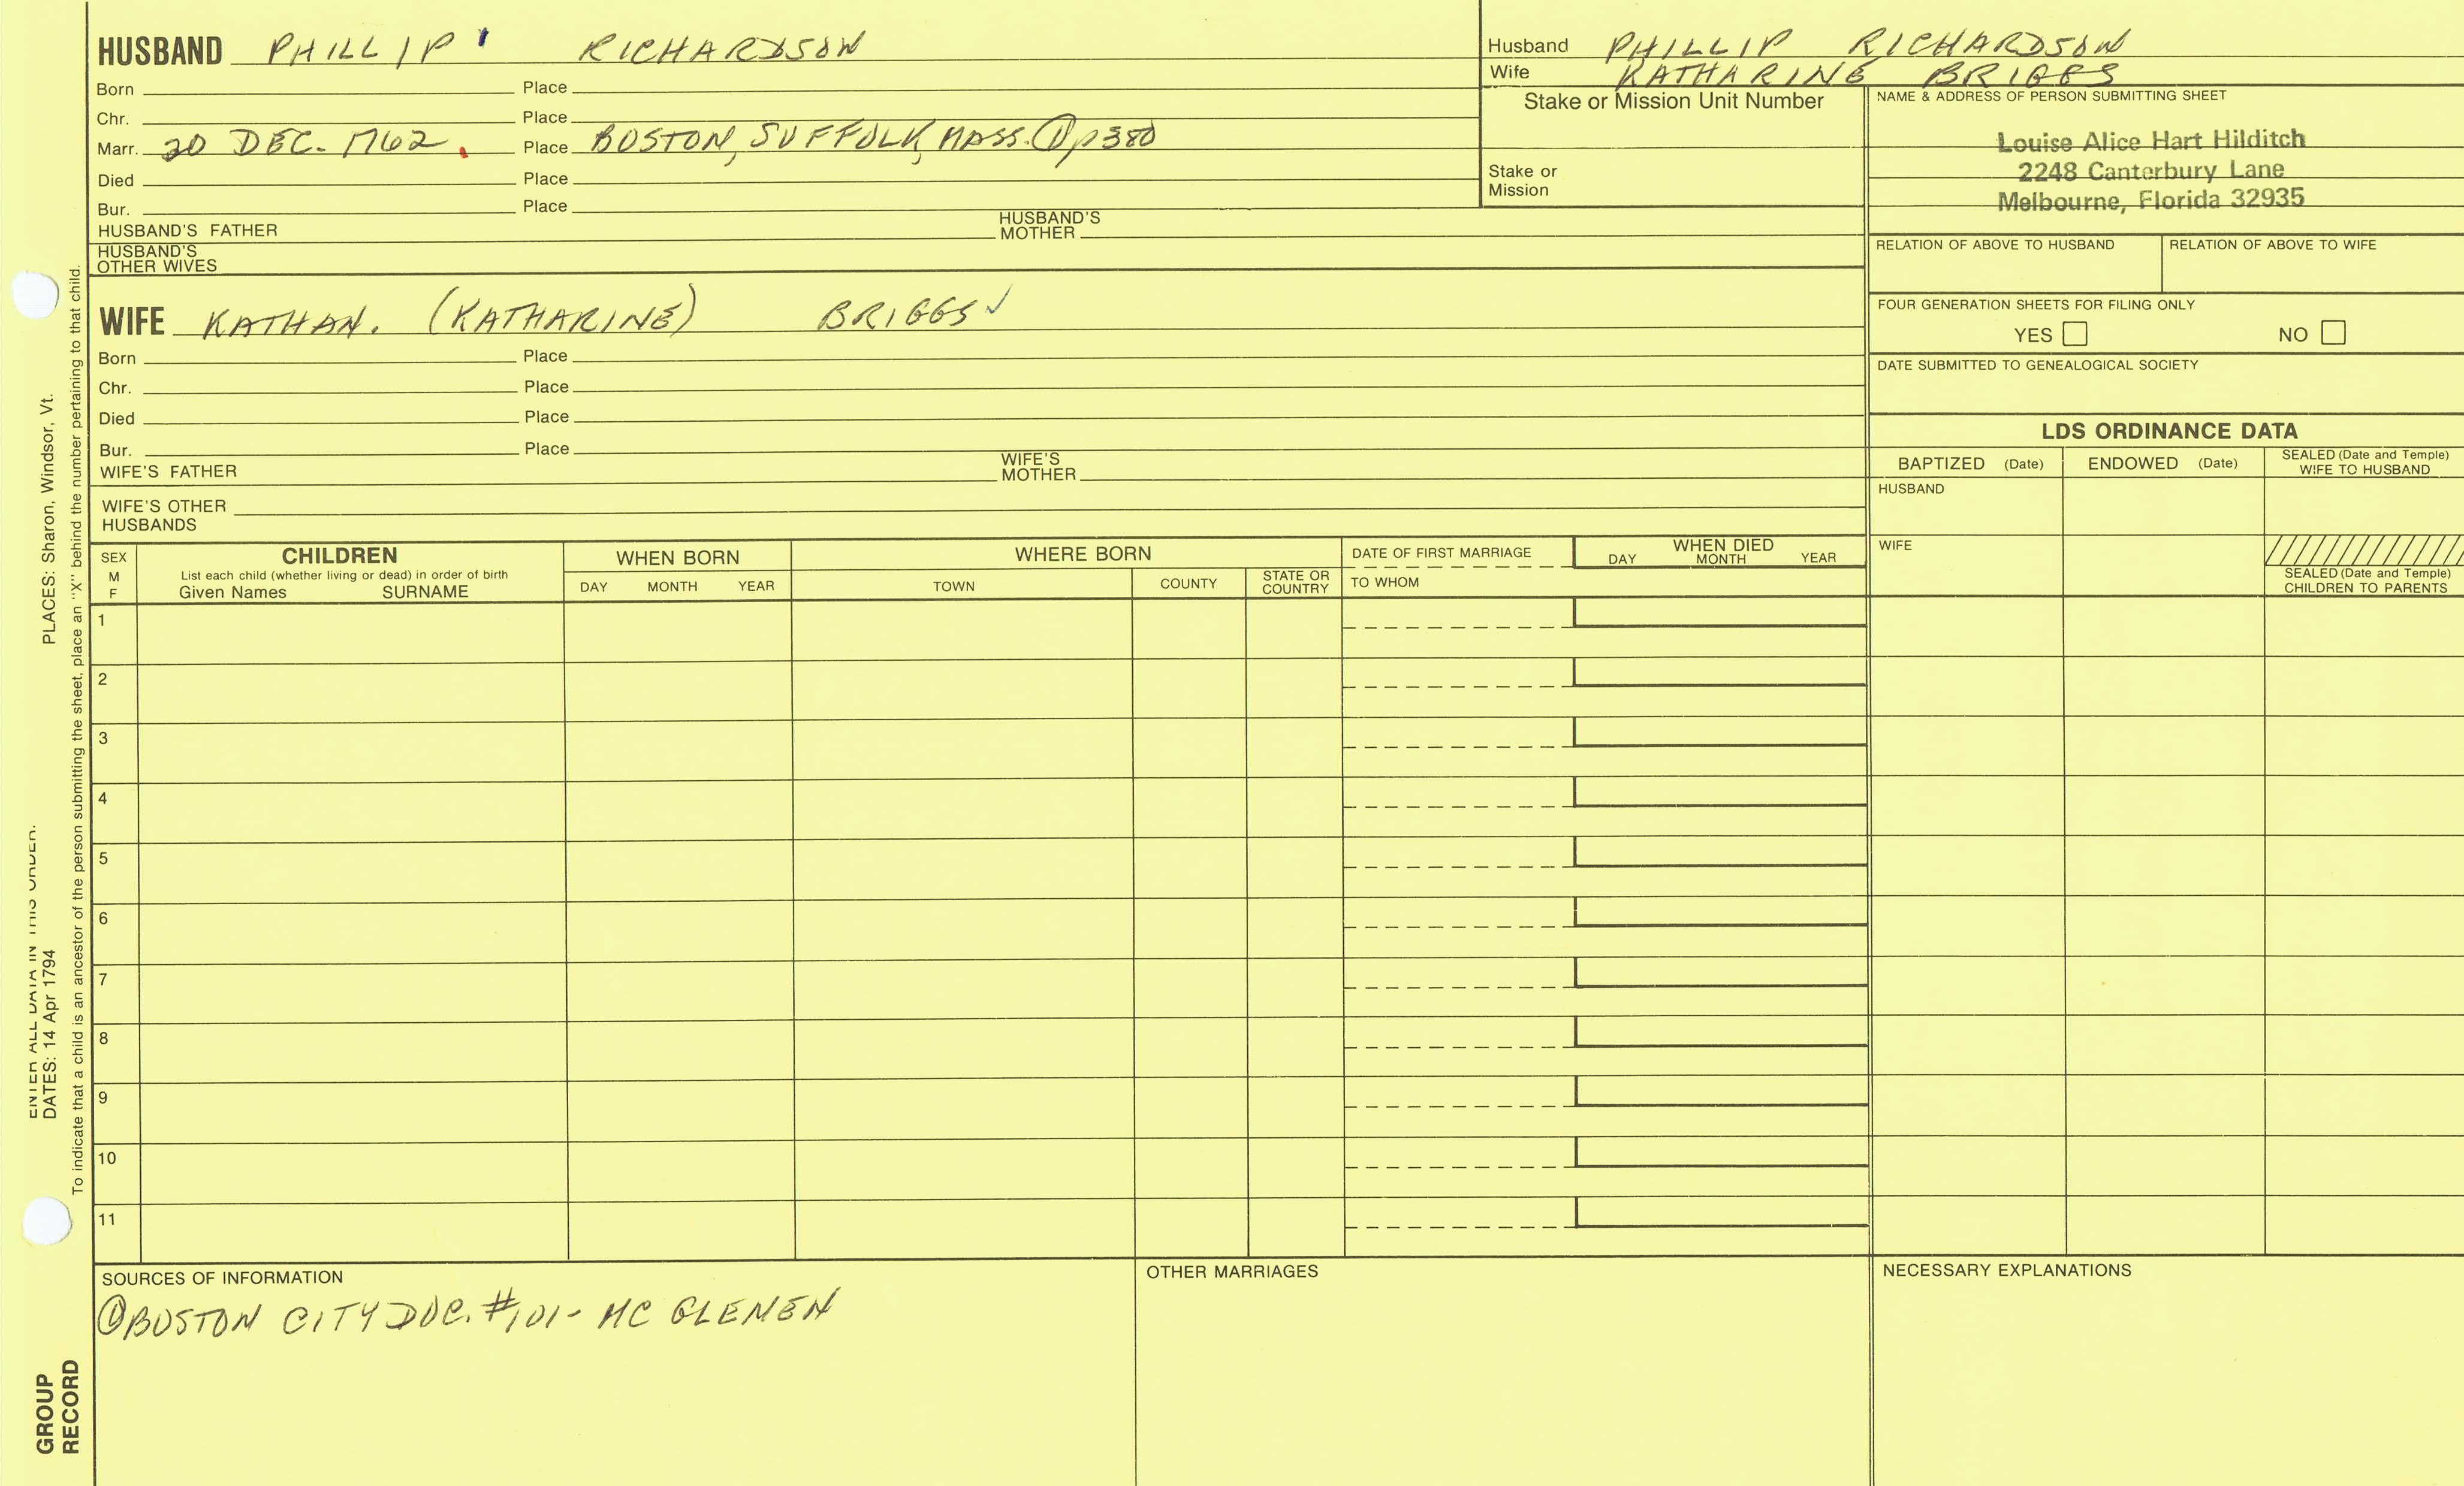 HUSBAND PHILLIP RICHARDSON
Born Place
Chr. Place
Marr. 20 DEC. 1762. Place BOSTON, SUFFOLK, MASS. ① p380
Died Place
Bur. Place
HUSBAND'S FATHER HUSBAND'S MOTHER
HUSBAND'S OTHER WIVES
Husband PHILLIP RICHARDSON
Wife KATHARINE BRIGGS
Stake or Mission Unit Number
Stake or
Mission
NAME & ADDRESS OF PERSON SUBMITTING SHEET
Louise Alice Hart Hilditch
2248 Canterbury Lane
Melbourne, Florida 32935
RELATION OF ABOVE TO HUSBAND RELATION OF ABOVE TO WIFE
FOUR GENERATION SHEETS FOR FILING ONLY
YES NO
DATE SUBMITTED TO GENEALOGICAL SOCIETY
WIFE KATHAN. (KATHARINE) BRIGGS ✓
Born Place
Chr. Place
Died Place
Bur. Place
WIFE'S FATHER WIFE'S MOTHER
WIFE'S OTHER
HUSBANDS
LDS ORDINANCE DATA
BAPTIZED (Date) ENDOWED (Date) SEALED (Date and Temple) WIFE TO HUSBAND
HUSBAND
WIFE
SEALED (Date and Temple)
CHILDREN TO PARENTS
SEX
M
F
CHILDREN
List each child (whether living or dead) in order of birth
Given Names SURNAME
WHEN BORN
DAY MONTH YEAR
WHERE BORN
TOWN COUNTY STATE OR COUNTRY
DATE OF FIRST MARRIAGE
TO WHOM
WHEN DIED
DAY MONTH YEAR
1
2
3
4
5
6
7
8
9
10
11
SOURCES OF INFORMATION
① BOSTON CITY DOC. #101- MC GLENEN
OTHER MARRIAGES
NECESSARY EXPLANATIONS
ENTER ALL DATA IN THIS ORDER:
DATES: 14 Apr 1794 PLACES: Sharon, Windsor, Vt.
To indicate that a child is an ancestor of the person submitting the sheet, place an "X" behind the number pertaining to that child.
GROUP
RECORD